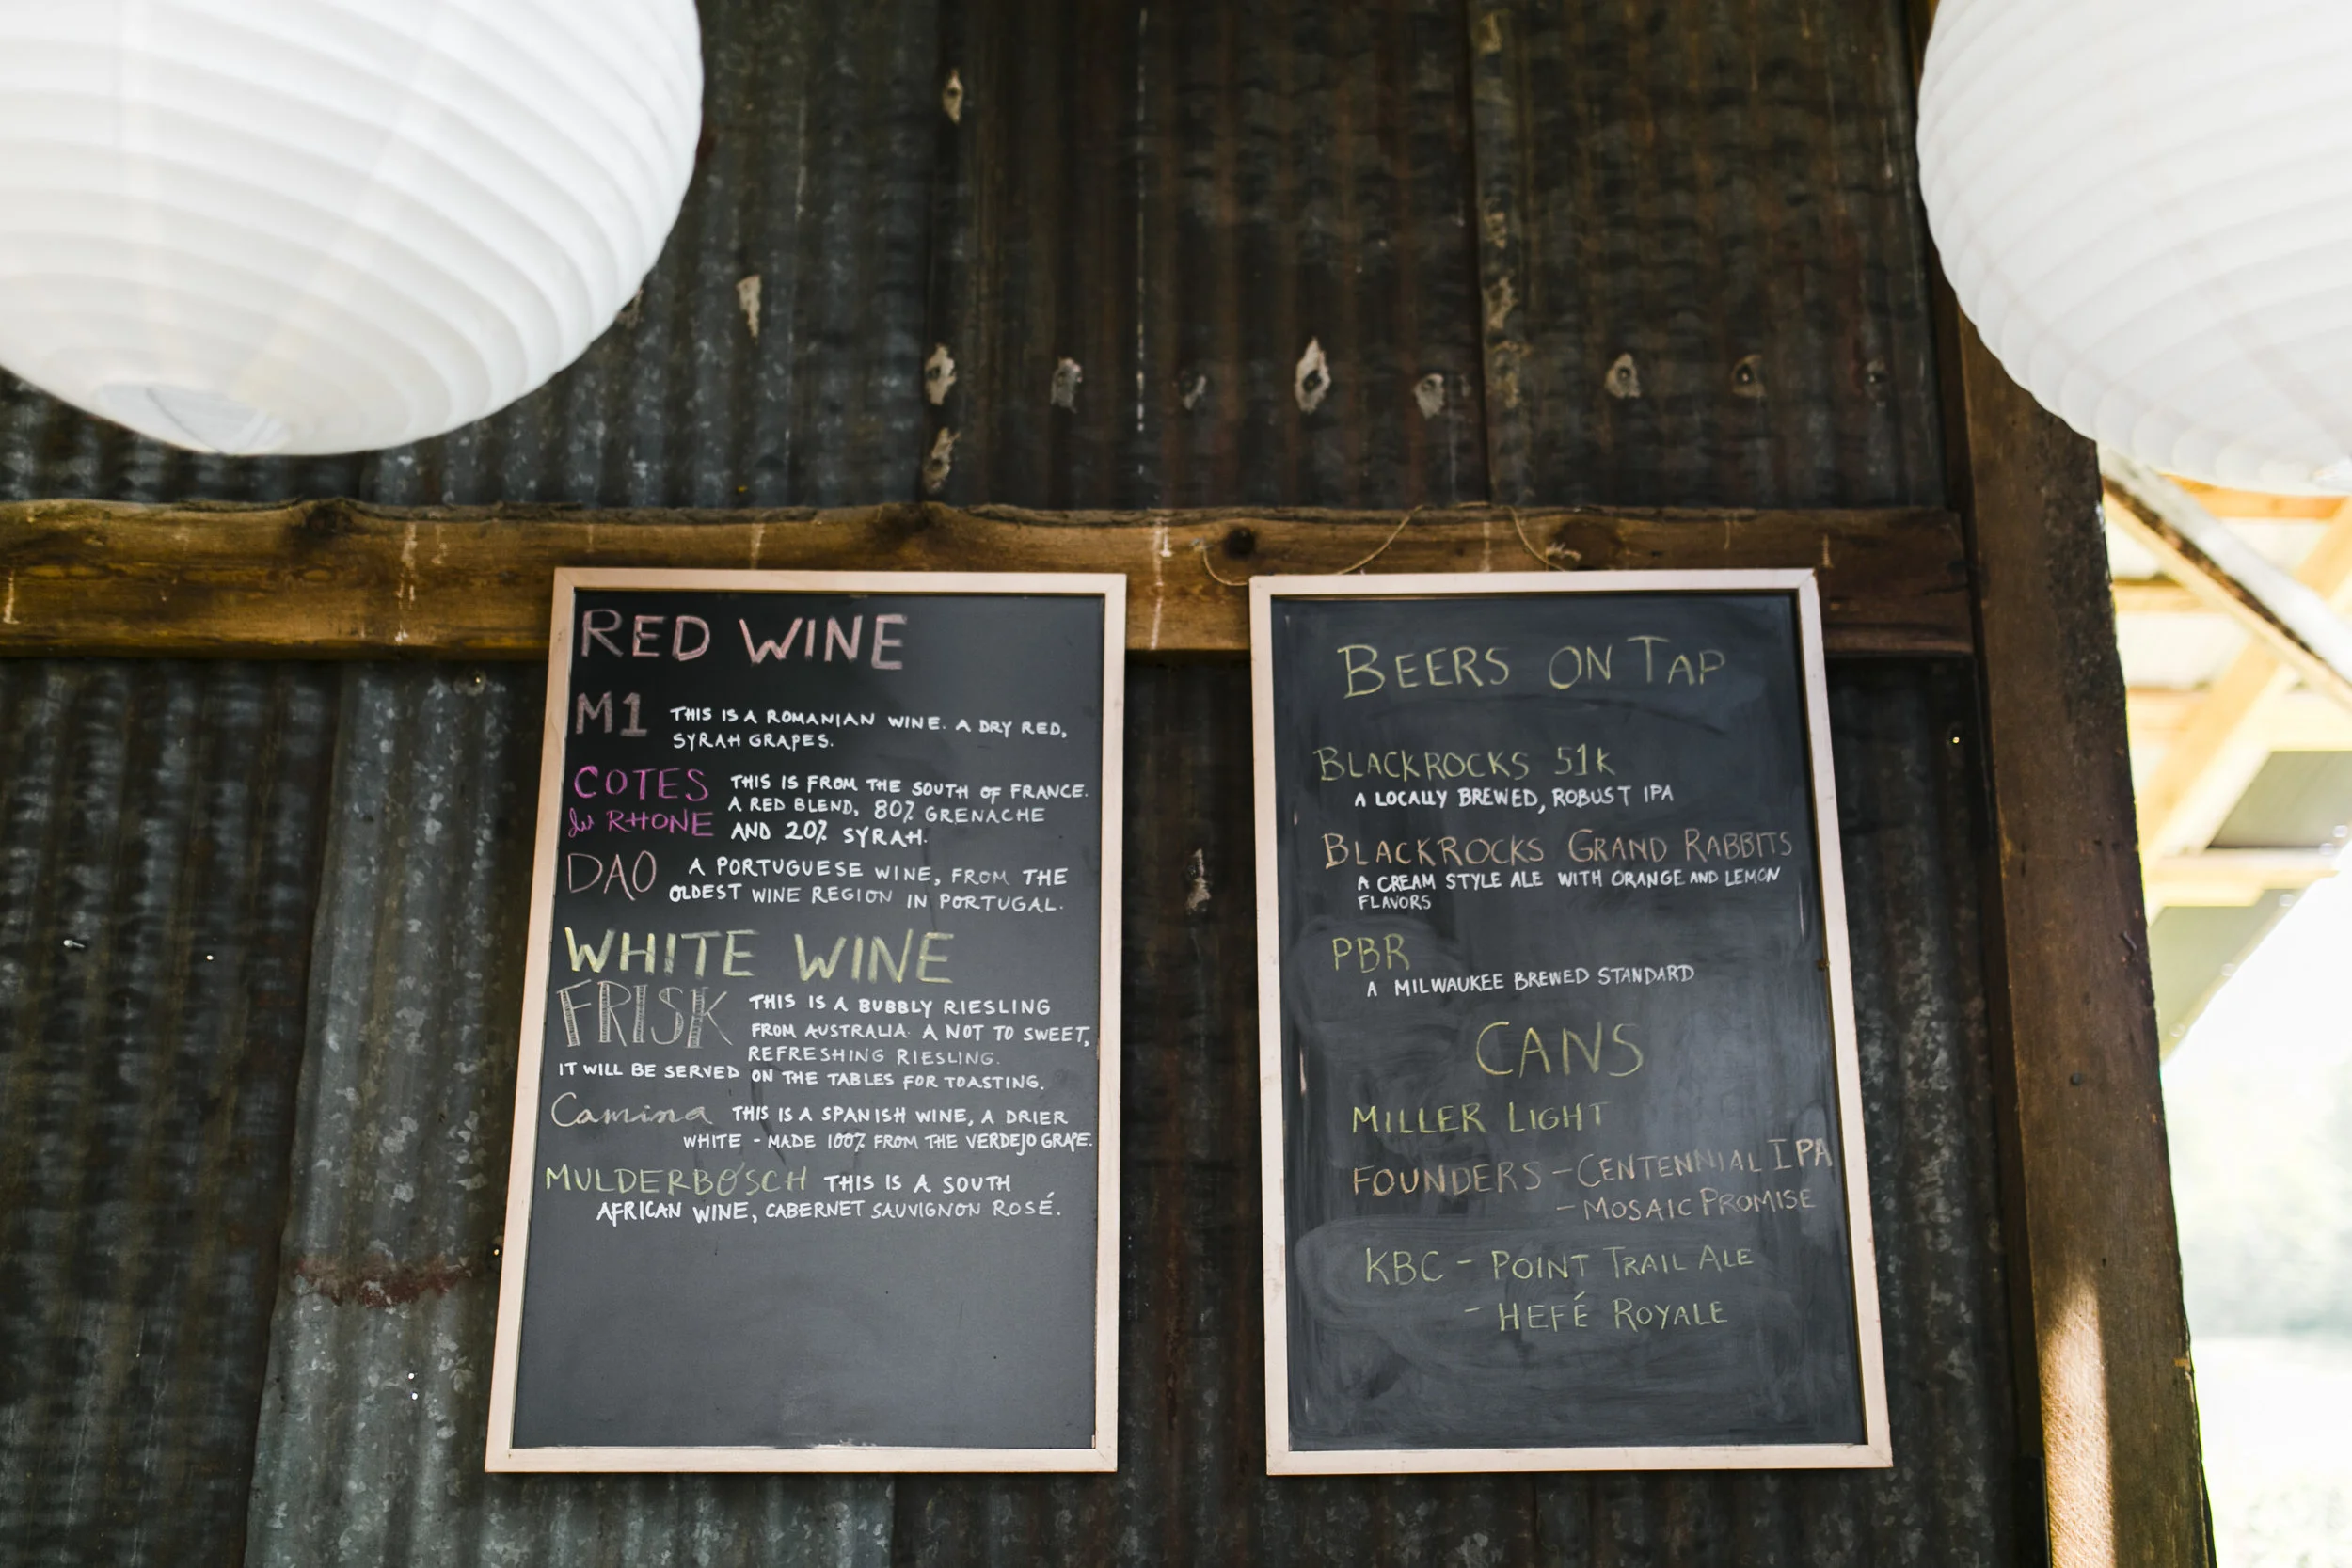 RED WINE
M1 THIS IS A ROMANIAN WINE. A DRY RED,
SYRAH GRAPES.
COTES THIS IS FROM THE SOUTH OF FRANCE.
A RED BLEND, 80% GRENACHE
du RHONE AND 20% SYRAH.
DAO A PORTUGUESE WINE, FROM THE
OLDEST WINE REGION IN PORTUGAL.
WHITE WINE
FRISK THIS IS A BUBBLY RIESLING
FROM AUSTRALIA. A NOT TO SWEET,
REFRESHING RIESLING.
IT WILL BE SERVED ON THE TABLES FOR TOASTING.
Camina THIS IS A SPANISH WINE, A DRIER
WHITE - MADE 100% FROM THE VERDEJO GRAPE.
MULDERBOSCH THIS IS A SOUTH
AFRICAN WINE, CABERNET SAUVIGNON ROSÉ.
BEERS ON TAP
BLACKROCKS 51K
A LOCALLY BREWED, ROBUST IPA
BLACKROCKS GRAND RABBITS
A CREAM STYLE ALE WITH ORANGE AND LEMON
FLAVORS
PBR
A MILWAUKEE BREWED STANDARD
CANS
MILLER LIGHT
FOUNDERS - CENTENNIAL IPA
- MOSAIC PROMISE
KBC - POINT TRAIL ALE
- HEFÉ ROYALE